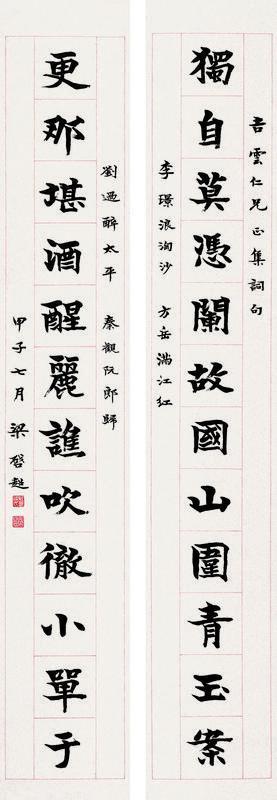 雲仁兄正集詞句
獨自莫憑闌故國山圍青玉案
李璟浪淘沙 方岳滿江紅
劉過醉太平 秦觀阮郎歸
更那堪酒醒麗譙吹徹小單于
甲子七月 梁啓超